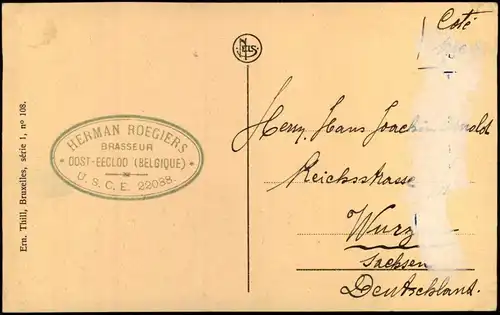 Coté
Ern. Thill, Bruxelles, série 1, nº 108.
NELS
HERMAN ROEGIERS
BRASSEUR
OOST-EECLOO (BELGIQUE)
U. S. C. E. 22038.
Herrn Hans Joachim
Reichsstrasse
Wurz
Sachsen
Deutschland.